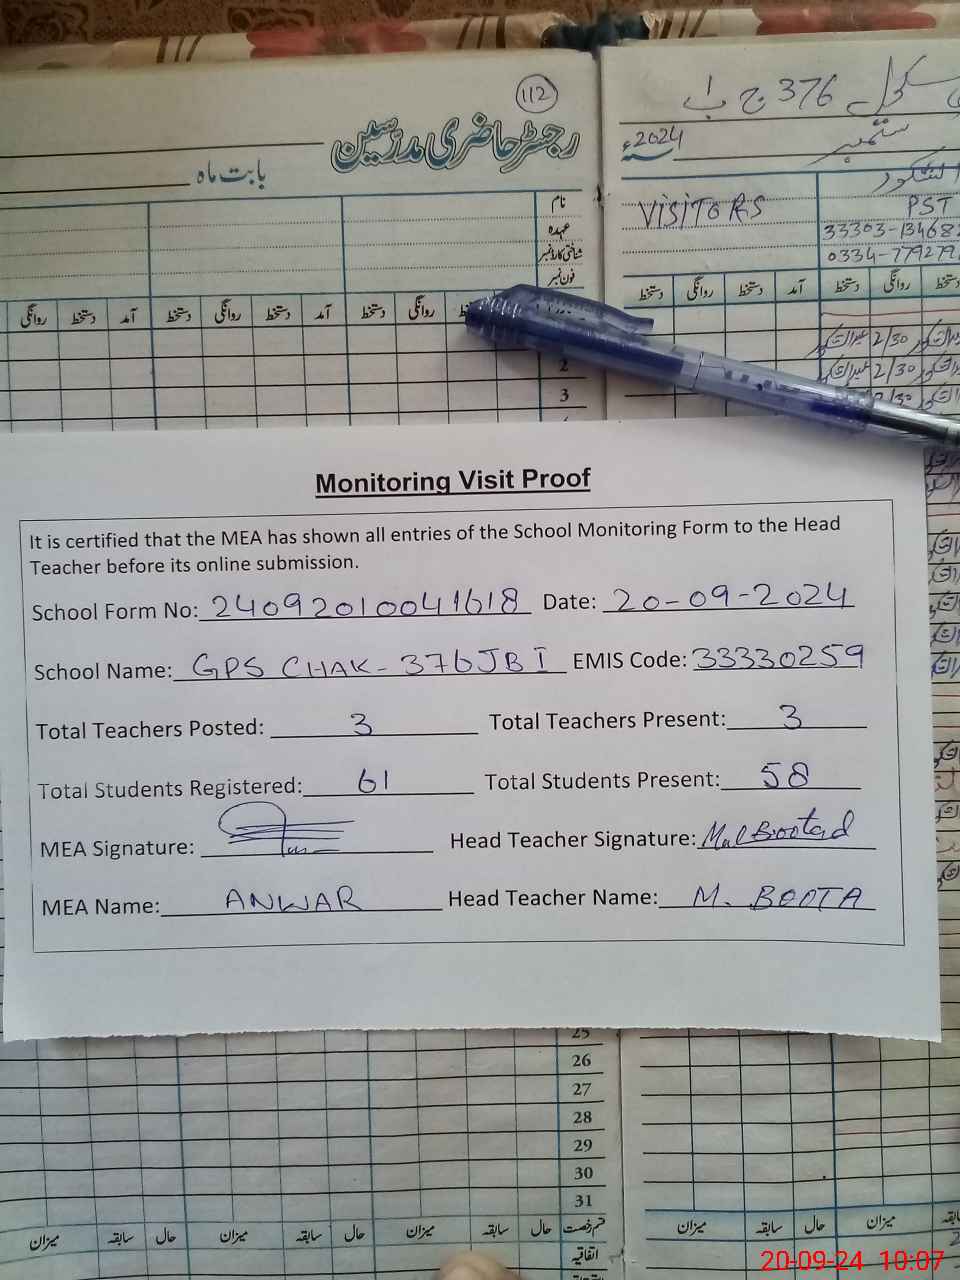 112
رجسٹر حاضری مدرسین
بابت ماہ
نام
عہدہ
شناختی کارڈ نمبر
فون نمبر
روانگی دستخط آمد دستخط روانگی دستخط آمد دستخط روانگی
2
3
سکول 376 ج ب
ستمبر 2024ء
VISITORS
PST
33303-134682
0334-779279
دستخط روانگی دستخط آمد دستخط روانگی دستخط
2/30
2/30
2/30
Monitoring Visit Proof
It is certified that the MEA has shown all entries of the School Monitoring Form to the Head
Teacher before its online submission.
School Form No: 24092010041618 Date: 20-09-2024
School Name: GPS CHAK-376JB I EMIS Code: 33330259
Total Teachers Posted: 3 Total Teachers Present: 3
Total Students Registered: 61 Total Students Present: 58
MEA Signature: Head Teacher Signature:
MEA Name: ANWAR Head Teacher Name: M. BOOTA
25
26
27
28
29
30
31
قسم رخصت حال سابقہ میزان حال سابقہ میزان حال سابقہ میزان
اتفاقیہ
میزان سابقہ حال میزان
20-09-24 10:07